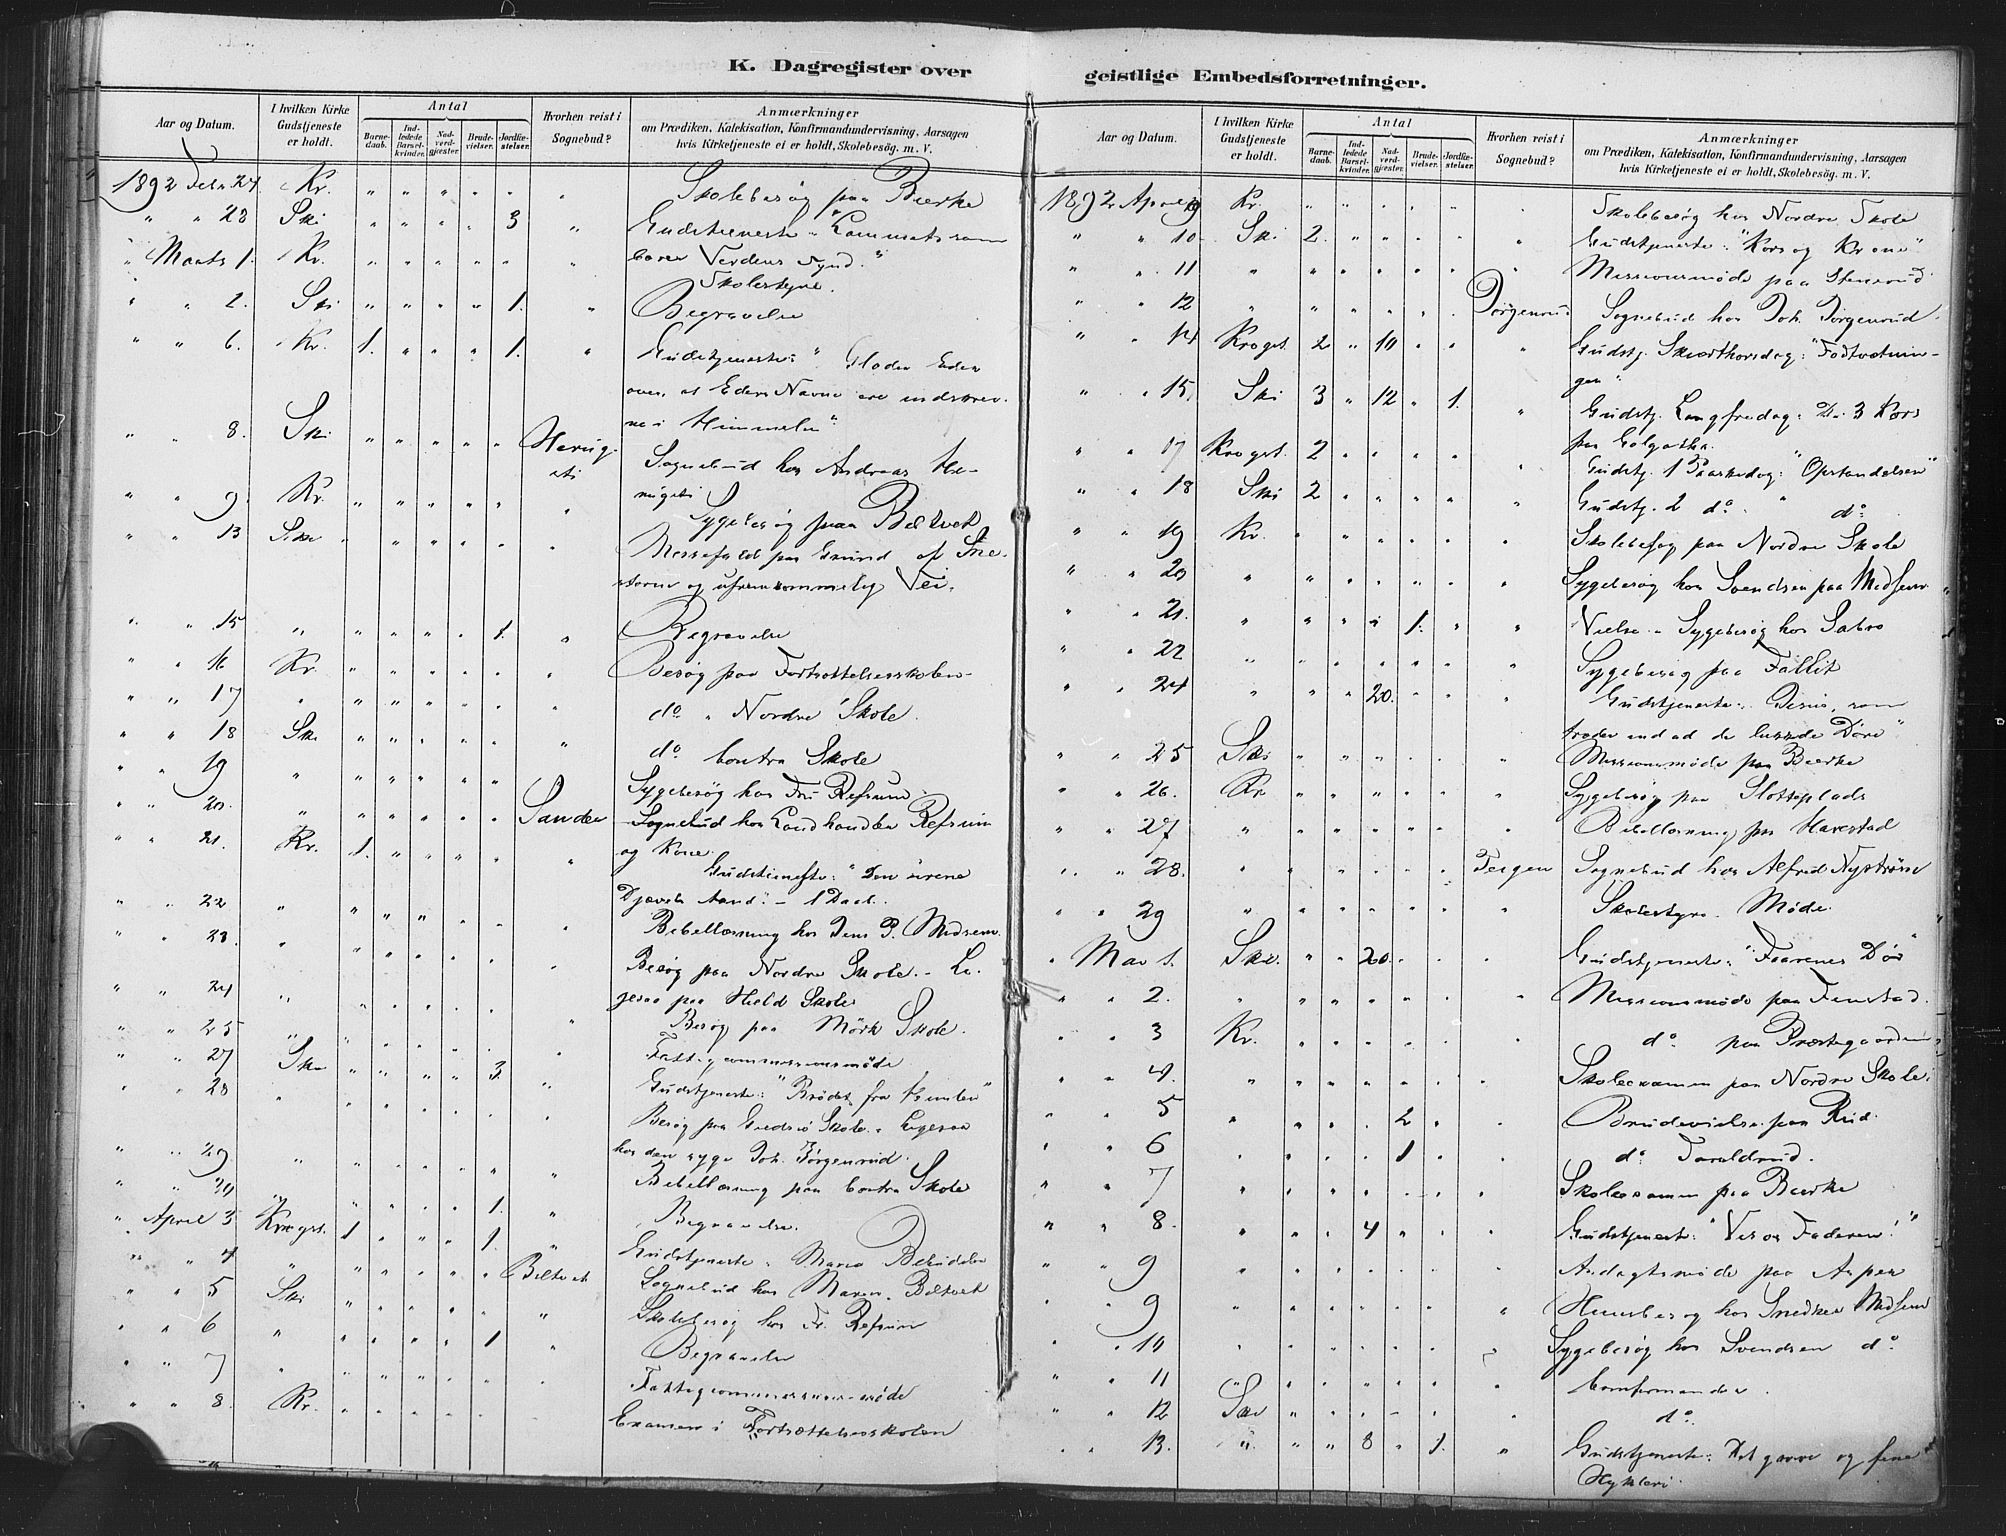 K. Dagregister over geistlige Embedsforretninger.
Aar og Datum.
I hvilken Kirke Gudstjeneste er holdt.
Antal
Barne-daab.
Ind-ledede Barsel-kvinder.
Nad-verd-gjester.
Brude-vielser.
Jordfæ-stelser.
Hvorhen reist i Sognebud?
Anmærkninger
om Prædiken, Katekisation, Konfirmandundervisning, Aarsagen
hvis Kirketjeneste ei er holdt, Skolebesög. m. V.
1892 Febr. 27 Kr. " " " " " " Skolebesøg paa Bjerke
" " 28 Ski " " " " 3 " Gudstjeneste "Lammet som
bærer Verdens Synd."
" Marts 1. Kr. " " " " " " Skolestyre.
" " 2. Ski " " " " 1. " Begravelse
" " 6. Kr. 1. " " " 1. " Gudstjeneste: "Glæder Eder
over, at Eders Navne ere indskrev-
ne i Himmelen"
" " 8. Ski " " " " " Sognebud hos Andreas
" " 9. Kr. " " " " " " Sygebesøg paa Bøltvet
" " 13 Ski " " " " " " Messefald paa Grund af Sne-
storm og ufremkommelig Vei.
" " 15 " " " " " 1. " Begravelse
" " 16 Kr. " " " " " " Besøg paa Fortsættelsesskolen
" " 17 " " " " " " " do " Nordre Skole.
" " 18 Ski " " " " " " do Contra Skole
" " 19 " " " " " " Sygebesøg hos Fru Refsum
" " 20. " " " " " " Sander Sognebud hos Landhandler Refsum
og Kone.
" " 21. Kr. 1. " " " " " Gudstjeneste: "Den urene
Djævels Aand". - 1 Daab.
" " 22 " " " " " " " Bibellæsning hos Jens P. Midsem
" " 23. " " " " " " " Besøg paa Nordre Skole. - Li-
gesaa paa Hield Skole
" " 24 " " " " " " " Besøg paa Mörk Skole.
" " 25 " " " " " " " Fattigcommissionsmöde
" " 27 Ski " " " " 3. " Gudstjeneste: "Brødet fra Himlen"
" " 28 " " " " " " " Besøg paa Skole. Ligesaa
hos den syge Joh. Jörgenrud.
" " 29. " " " " " " " Bibellæsning paa Contra Skole
" " " " " " 1. " Begravelse.
" April 3 Krogst. 1 " " " 1. " Gudstjeneste. Maria Bebudelse
" " 4 " " " " " " Böltvet Sognebud hos Maren Böltvet
" " 5 Ski " " " " " " hos Fr. Refsum
" " 6 " " " " " 1 " Begravelse
" " 7 " " " " " " " Fattigcommissionsmöde
" " 8. Kr. " " " " " " Examen i Fortsættelsesskolen
Aar og Datum.
I hvilken Kirke Gudstjeneste er holdt.
Antal
Barne-daab.
Ind-ledede Barsel-kvinder.
Nad-verd-gjester.
Brude-vielser.
Jordfæ-stelser.
Hvorhen reist i Sognebud?
Anmærkninger
om Prædiken, Katekisation, Konfirmandundervisning, Aarsagen
hvis Kirketjeneste ei er holdt, Skolebesög. m. V.
1892 April 9 Kr. " " " " " " Skolebesøg hos Nordre Skole
" " 10. Ski 2. " " " " " Gudstjeneste: "Kors og Krone"
" " 11 " " " " " " " Missionsmöde paa Stenrud
" " 12 " " " " " " Jörgenrud Sognebud hos Joh. Jörgenrud.
" " 14 Krogst. 2 " 10 " " " Gudstj. Skjærthorsdag: "Fodtvætnin-
gen"
" " 15. Ski 3 " 12 " 1. " Gudstj. Langfredag: De 3 Kors
paa Golgatha.
" " 17 Krogst. 2 " " " " " Gudstj. 1 Paaskedag: "Opstandelsen"
" " 18 Ski 2 " " " " " Gudstj. 2 do. " do.
" " 19 Kr. " " " " " " Skolebesøg paa Nordre Skole
" " 20 " " " " " " " Sygebesøg hos Svendsen paa Midsem
" " 21. " " " " 1. " " Vielse. Sygebesøg hos Sabro
" " 22 " " " " " " " Sygebesøg paa Fallit
" " 24 " " " 20. " " " Gudstjeneste. Jesus, som
træder ind ad de lukkede Döre"
" " 25 Ski " " " " " " Missionsmöde paa Bjerke
" " 26. Kr " " " " " " Sygebesøg paa Slottsplads
" " 27 " " " " " " " Bibellæsning paa Harestad
" " 28. " " " " " " Teigen Sognebud hos Alfred Nyström
" " 29 " " " " " " Skolestyre. Møde.
" Mai 1. Ski. " " 20. " " " Gudstjeneste: "Faarenes Dör"
" " 2. " " " " " " " Missionsmöde paa Finstad.
" " 3 Kr. " " " " " " do. paa Præstegaarden
" " 4. " " " " " " " Skoleexamen paa Nordre Skole.
" " 5 " " " " 2 " Brudevielse paa Rud.
" " 6 " " " " 1 " do. Taraldrud.
" " 7 " " " " " " " Skoleexamen paa Bjerke
" " 8. " " " 4 " " " Gudstjeneste: "Vis os Faderen!"
" " 9 " " " " " " Andagtsmöde paa Asper
" " 9 " " " " " " " Huusbesøg hos Snedker Midsem
" " 10 " " " " " " " Sygebesøg hos Svendsen do.
" " 11 " " " " " " " Confirmander.
" " 12 Ski " " " " " " do.
" " 13. " " " 8 " 1. " Gudstjeneste: Det grove og fine
Hykleri.